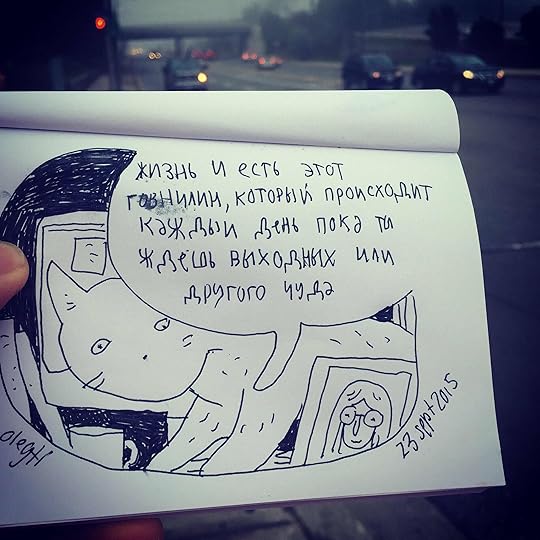 жизнь и есть этот
говнилин, который происходит
каждый день пока ты
ждёшь выходных или
другого чуда
olegti
23 sept 2015